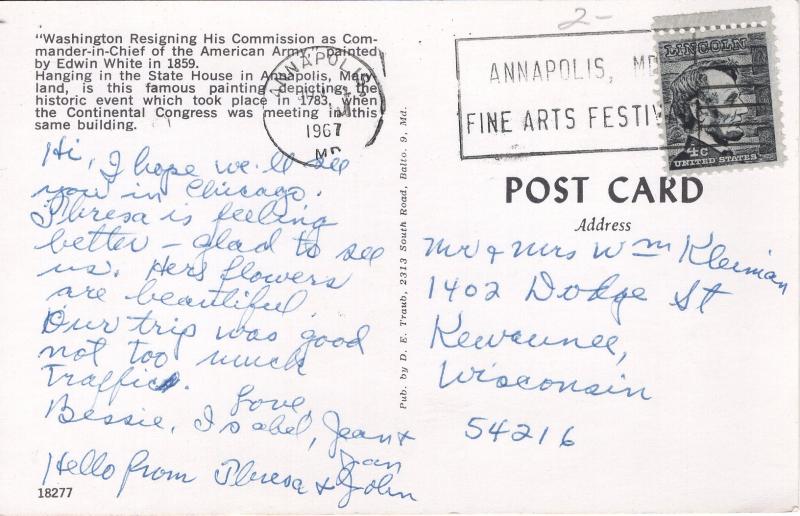 "Washington Resigning His Commission as Com-
mander-in-Chief of the American Army," painted
by Edwin White in 1859.
Hanging in the State House in Annapolis, Mary-
land, is this famous painting depicting the
historic event which took place in 1783, when
the Continental Congress was meeting in this
same building.
Hi, I hope we'll see
you in Chicago.
Theresa is feeling
better – glad to see
us. Hers flowers
are beautiful
Our trip was good
not too much
traffic.
Love,
Bessie, Isabel, Jean &
Jan
Hello from Theresa & John
18277
Pub. by D. E. Traub, 2313 South Road, Balto. 9, Md.
ANNAPOLIS
1967
MD
2-
ANNAPOLIS, MD
FINE ARTS FESTIV
LINCOLN
4c
UNITED STATES
POST CARD
Address
Mr & Mrs Wm Kleiman
1402 Dodge St
Kewaunee,
Wisconsin
54216